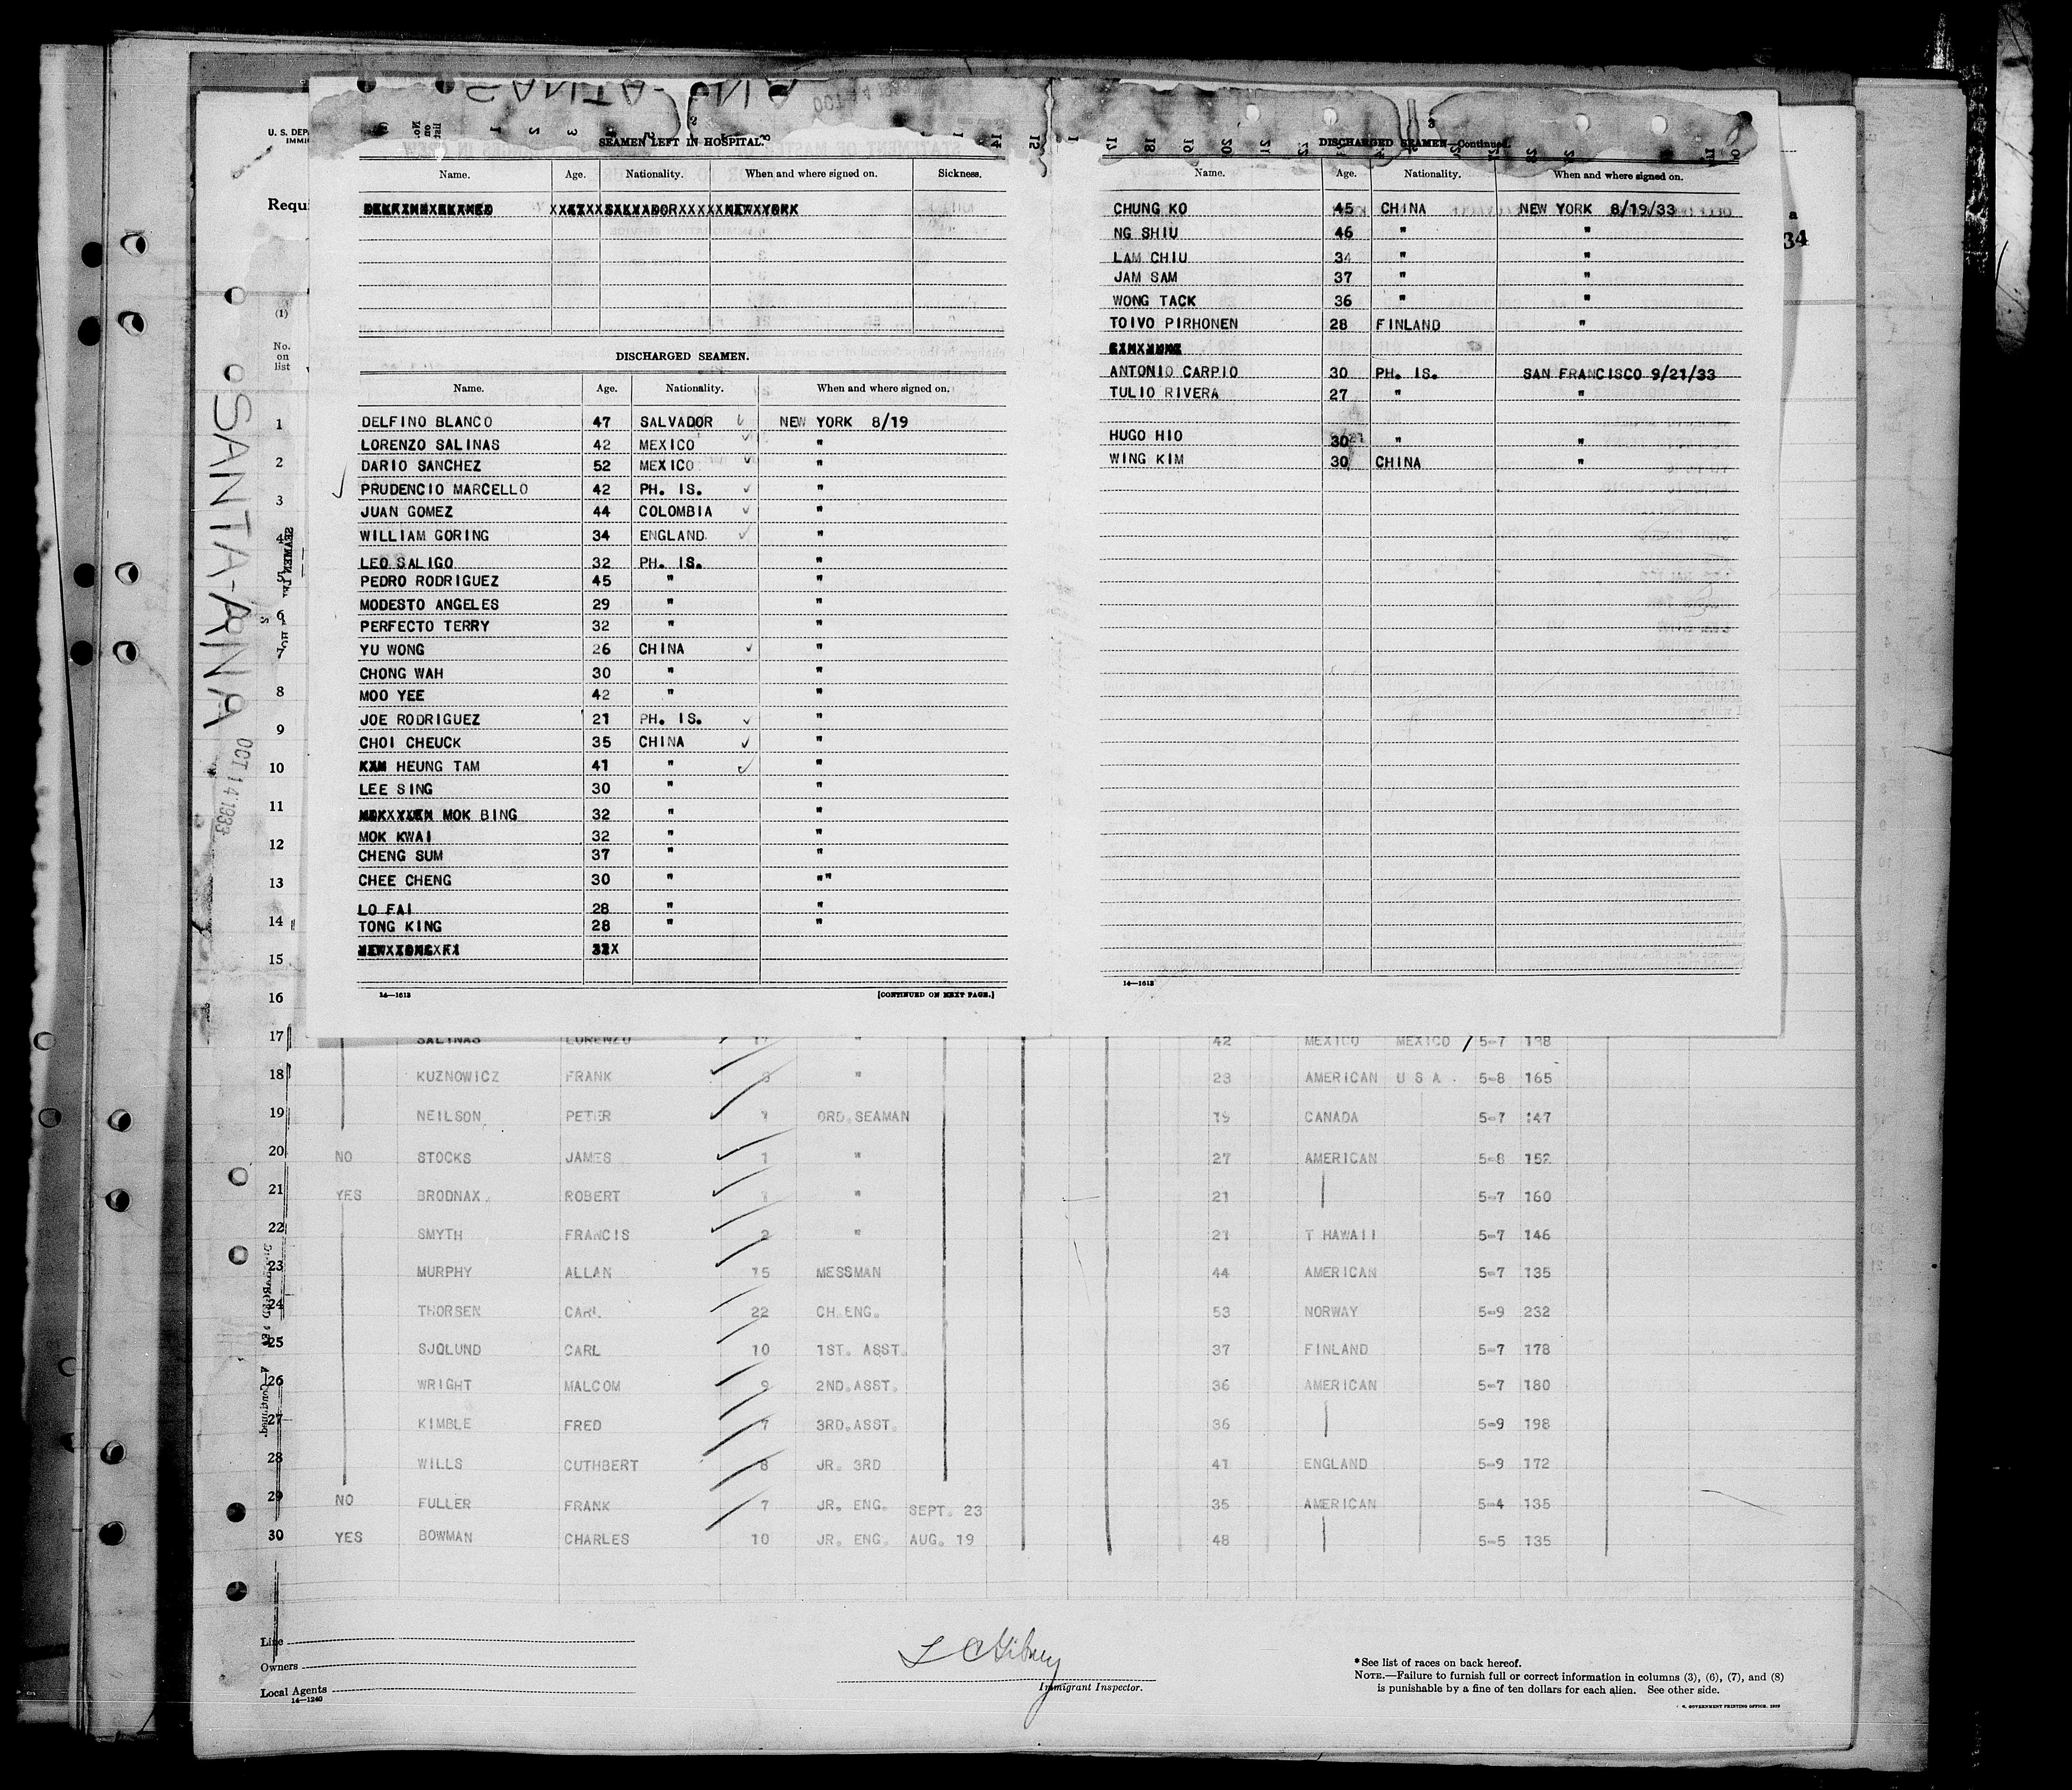 SANTA-ANA
U. S. DEP
IMMI
Requi
SEAMEN LEFT IN HOSPITAL.
Name. Age. Nationality. When and where signed on. Sickness.
DISCHARGED SEAMEN.
Name. Age. Nationality. When and where signed on.
DELFINO BLANCO 47 SALVADOR NEW YORK 8/19
LORENZO SALINAS 42 MEXICO "
DARIO SANCHEZ 52 MEXICO "
PRUDENCIO MARCELLO 42 PH. IS. "
JUAN GOMEZ 44 COLOMBIA "
WILLIAM GORING 34 ENGLAND "
LEO SALIGO 32 PH. IS. "
PEDRO RODRIGUEZ 45 " "
MODESTO ANGELES 29 " "
PERFECTO TERRY 32 " "
YU WONG 26 CHINA "
CHONG WAH 30 " "
MOO YEE 42 " "
JOE RODRIGUEZ 21 PH. IS. "
CHOI CHEUCK 35 CHINA "
HEUNG TAM 41 " "
LEE SING 30 " "
MOK BING 32 " "
MOK KWAI 32 " "
CHENG SUM 37 " "
CHEE CHENG 30 " ""
LO FAI 28 " "
TONG KING 28 " "
14—1613 [CONTINUED ON NEXT PAGE.]
DISCHARGED SEAMEN—Continued.
Name. Age. Nationality. When and where signed on.
CHUNG KO 45 CHINA NEW YORK 8/19/33
NG SHIU 46 " "
LAM CHIU 34 " "
JAM SAM 37 " "
WONG TACK 36 " "
TOIVO PIRHONEN 28 FINLAND "
ANTONIO CARPIO 30 PH. IS. SAN FRANCISCO 9/21/33
TULIO RIVERA 27 " "
HUGO HIO 30 " "
WING KIM 30 CHINA "
14—1613
a
34
(1)
No.
on
list
1
2
3
4
6
7
8
9
10
11
12
13
14
15
16
SANTA-ANA
OCT 14 1933
17 SALINAS LORENZO 17 " 42 MEXICO MEXICO 5-7 198
18 KUZNOWICZ FRANK 3 " 23 AMERICAN U S A . 5-8 165
19 NEILSON PETER ORD.SEAMAN 19 CANADA 5-7 147
20 NO STOCKS JAMES 1 " 27 AMERICAN 5-8 152
21 YES BRODNAX ROBERT " 21 5-7 160
22 SMYTH FRANCIS 2 " 21 T HAWAII 5-7 146
23 MURPHY ALLAN 15 MESSMAN 44 AMERICAN 5-7 135
24 THORSEN CARL 22 CH.ENG. 53 NORWAY 5-9 232
25 SJOLUND CARL 10 1ST. ASST. 37 FINLAND 5-7 178
26 WRIGHT MALCOM 9 2ND.ASST. 36 AMERICAN 5-7 180
27 KIMBLE FRED 7 3RD.ASST. 36 5-9 198
28 WILLS CUTHBERT 8 JR. 3RD 41 ENGLAND 5-9 172
29 NO FULLER FRANK 7 JR. ENG. SEPT. 23 35 AMERICAN 5-4 135
30 YES BOWMAN CHARLES 10 JR. ENG. AUG. 19 48 5-5 135
Line
Owners
Local Agents
14—1240
Immigrant Inspector.
*See list of races on back hereof.
NOTE.—Failure to furnish full or correct information in columns (3), (6), (7), and (8)
is punishable by a fine of ten dollars for each alien. See other side.